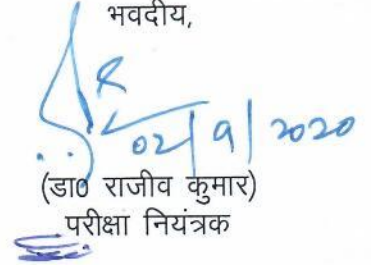 भवदीय,
02/9/2020
(डा० राजीव कुमार)
परीक्षा नियंत्रक